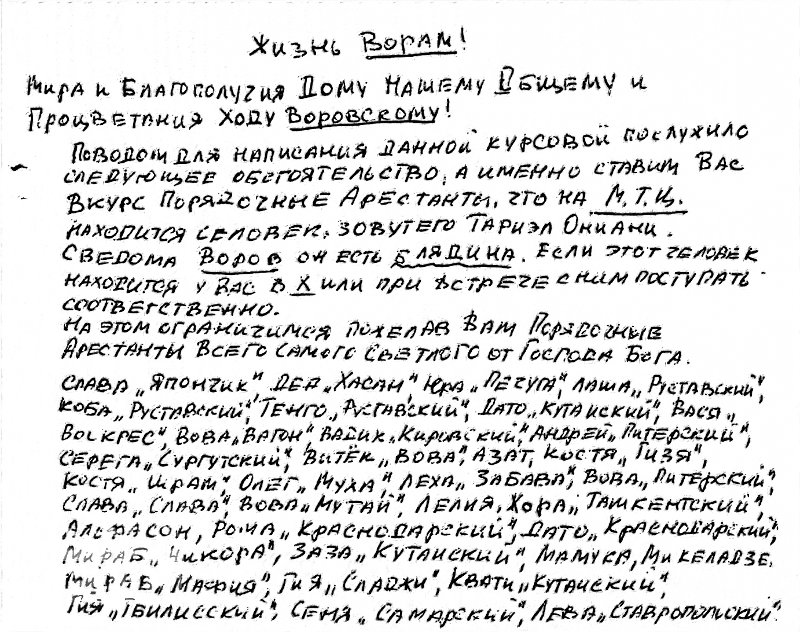 Жизнь Ворам!
Мира и Благополучия Дому Нашему Общему и
Процветания Ходу Воровскому!
Поводом для написания данной курсовой послужило
следующее обстоятельство, а именно ставим Вас
вкурс Порядочные Арестанты, что на М.Т.Ц.
находится человек, зовут его Тариэл Ониани.
Сведома Воров он есть блядина. Если этот человек
находится у Вас в Х или при встрече с ним поступать
соответственно.
На этом ограничимся пожелав Вам Порядочные
Арестанты всего самого светлого от Господа Бога.
Слава „Япончик“, Дед „Хасан“, Юра „Печуга“, Лаша „Руставский“,
Коба „Руставский“, Тенго „Руставский“, Дато „Кутаиский“, Вася „
Воскрес“, Вова „Вагон“, Вадик „Кировский“, Андрей „Питерский“,
Серега „Сургутский“, Витёк „Вова“, Азат, Костя „Гизя“,
Костя „Шрам“, Олег „Муха“, Леха „Забава“, Вова „Питерский“,
Слава „Слава“, Вова „Мутай“, Лелия, Хора „Ташкентский“,
Альфасон, Рома „Краснодарский“, Дато „Краснодарский“,
Мираб „Чикора“, Заза „Кутаиский“, Мамука, Микеладзе,
Мираб „Мафия“, Гия „Сладжи“, Квати „Кутаиский“,
Гия „Тбилисский“, Сеня „Самарский“, Лева „Ставропольский“.